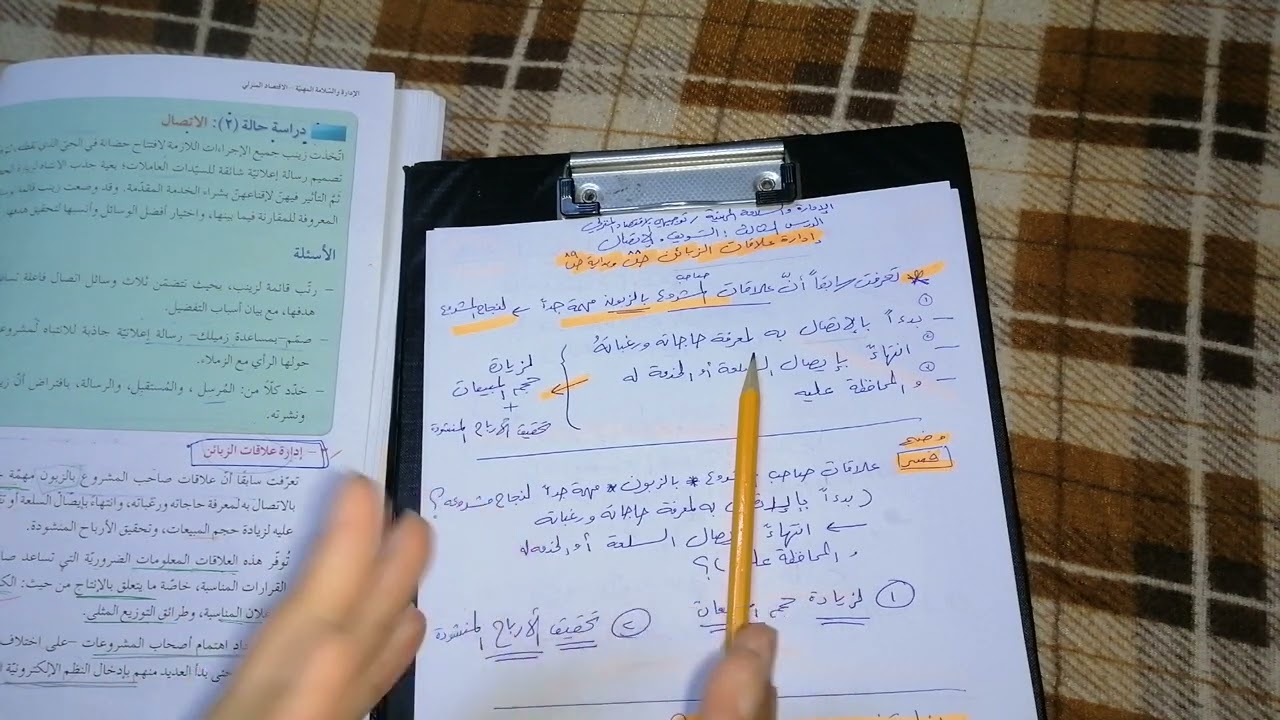 الإدارة والسّلامة المهنيّة - الاقتصاد المنزلي
دراسة حالة (٢): الاتصال
اتّخذت زينب جميع الإجراءات اللازمة لافتتاح حضانة في الحيّ الذي
تصميم رسالة إعلانيّة شائقة للسيّدات العاملات؛ بغية جذب الانتباه
ثمّ التأثير فيهنّ لإقناعهنّ بشراء الخدمة المقدّمة. وقد وضعت زينب قائمة
المعروفة للمقارنة فيما بينها، واختيار أفضل الوسائل وأنسبها لتحقيق هدفها
الأسئلة
– رتّب قائمة لزينب، بحيث تتضمّن ثلاث وسائل اتصال فاعلة
هدفها، مع بيان أسباب التفضيل.
– صمّم-بمساعدة زميلك- رسالة إعلانيّة جاذبة للانتباه
حولها الرأي مع الزملاء.
– حدّد كلًّا من: المُرسِل، والمُستقبِل، والرسالة، بافتراض أنّ
ونشرته.
– إدارة علاقات الزبائن
تعرّفت سابقًا أنّ علاقات صاحب المشروع بالزبون مهمّة
بالاتصال به لمعرفة حاجاته ورغباته، وانتهاءً بإيصال السلعة أو
عليه لزيادة حجم المبيعات، وتحقيق الأرباح المنشودة.
تُوفّر هذه العلاقات المعلومات الضروريّة التي تساعد
القرارات المناسبة، خاصّة ما يتعلق بالإنتاج من حيث:
المناسبة، وطرائق التوزيع المثلى.
اهتمام أصحاب المشروعات –على اختلاف
حتى بدأ العديد منهم بإدخال النظم الإلكترونيّة
الإدارة والسلامة المهنية / توجيهي اقتصاد منزلي
الدرس الثالث: التسويق. الاتصال
إدارة علاقات الزبائن
* تعرفت سابقاً أنّ علاقات صاحب المشروع بالزبون مهمة جداً ← لنجاح المشروع
١ – بدءاً بالإتصال به لمعرفة حاجاته ورغباته
٢ – انتهاءً بإيصال السلعة أو الخدمة له
٣ – و المحافظة عليه
لزيادة
حجم المبيعات
+
تحقيق الأرباح المنشودة
وضح
فسر
علاقات صاحب * بالزبون * مهمة جداً لنجاح مشروعه؟
(بدءاً به لمعرفة حاجاته ورغباته
← انتهاءً السلعة أو الخدمة له
و المحافظة
١ لزيادة حجم
٢ تحقيق الأرباح المنشودة